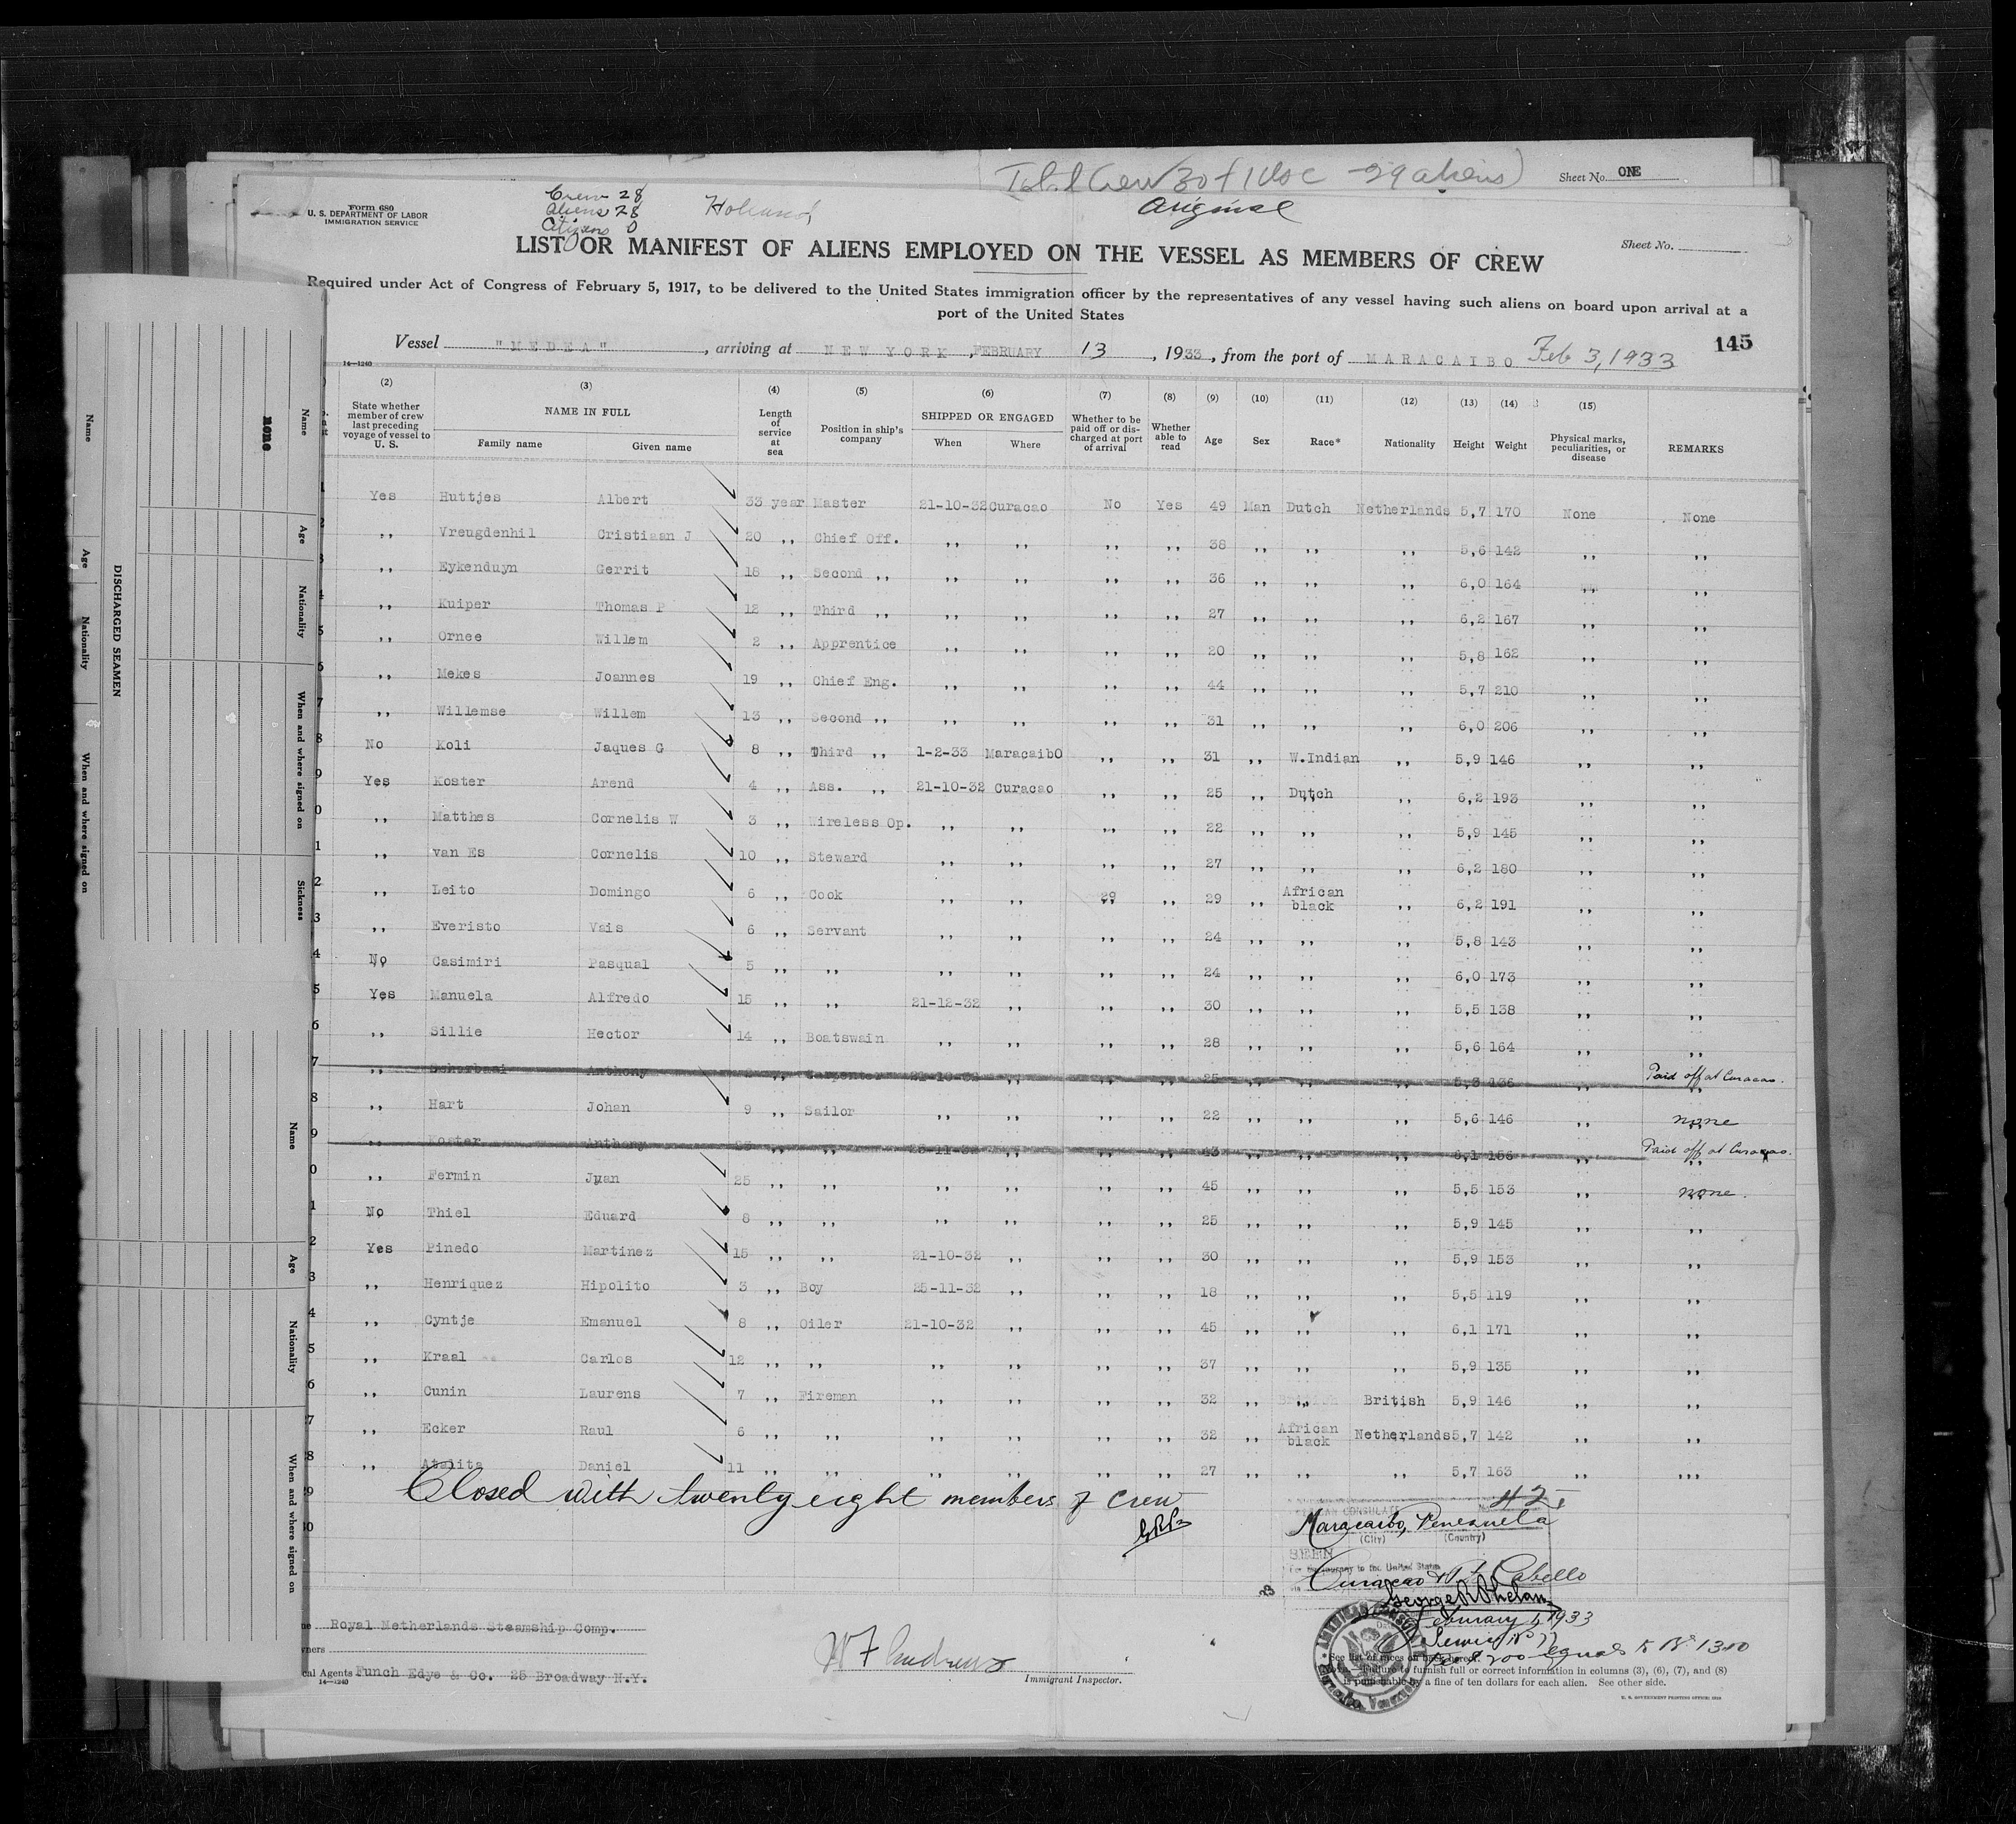 Total Crew 30 + 1 doc - 29 aliens
Sheet No. ONE
Form 680
U. S. DEPARTMENT OF LABOR
IMMIGRATION SERVICE
Crew 28
Aliens 28
Citizens 0
Holland
Original
Sheet No.
LIST OR MANIFEST OF ALIENS EMPLOYED ON THE VESSEL AS MEMBERS OF CREW
Required under Act of Congress of February 5, 1917, to be delivered to the United States immigration officer by the representatives of any vessel having such aliens on board upon arrival at a
port of the United States
145
Vessel "MEDEA", arriving at NEW YORK, FEBRUARY 13, 1933, from the port of MARACAIBO Feb 3, 1933
14—1240
(2) (3) (4) (5) (6) (7) (8) (9) (10) (11) (12) (13) (14) (15)
State whether member of crew last preceding voyage of vessel to U. S.
NAME IN FULL
Family name Given name
Length of service at sea
Position in ship's company
SHIPPED OR ENGAGED
When Where
Whether to be paid off or discharged at port of arrival
Whether able to read
Age Sex Race* Nationality Height Weight
Physical marks, peculiarities, or disease
REMARKS
1 Yes Huttjes Albert 33 year Master 21-10-32 Curacao No Yes 49 Man Dutch Netherlands 5,7 170 None None
2 ,, Vreugdenhil Cristiaan J 20 ,, Chief Off. ,, ,, ,, ,, 38 ,, ,, ,, 5,6 142 ,, ,,
3 ,, Eykenduyn Gerrit 18 ,, Second ,, ,, ,, ,, ,, 36 ,, ,, ,, 6,0 164 ,, ,,
4 ,, Kuiper Thomas P 12 ,, Third ,, ,, ,, ,, ,, 27 ,, ,, ,, 6,2 167 ,, ,,
5 ,, Ornee Willem 2 ,, Apprentice ,, ,, ,, ,, 20 ,, ,, ,, 5,8 162 ,, ,,
6 ,, Mekes Joannes 19 ,, Chief Eng. ,, ,, ,, ,, 44 ,, ,, ,, 5,7 210 ,, ,,
7 ,, Willemse Willem 13 ,, Second ,, ,, ,, ,, ,, 31 ,, ,, ,, 6,0 206 ,, ,,
8 No Koli Jaques G 8 ,, Third ,, 1-2-33 MaracaibO ,, ,, 31 ,, W.Indian ,, 5,9 146 ,, ,,
9 Yes Koster Arend 4 ,, Ass. ,, 21-10-32 Curacao ,, ,, 25 ,, Dutch ,, 6,2 193 ,, ,,
0 ,, Matthes Cornelis W 3 ,, Wireless Op. ,, ,, ,, ,, 22 ,, ,, ,, 5,9 145 ,, ,,
1 ,, van Es Cornelis 10 ,, Steward ,, ,, ,, ,, 27 ,, ,, ,, 6,2 180 ,, ,,
2 ,, Leito Domingo 6 ,, Cook ,, ,, ,, ,, 29 ,, African black ,, 6,2 191 ,, ,,
3 ,, Everisto Vais 6 ,, Servant ,, ,, ,, ,, 24 ,, ,, ,, 5,8 143 ,, ,,
4 No Casimiri Pasqual 5 ,, ,, ,, ,, ,, ,, 24 ,, ,, ,, 6,0 173 ,, ,,
5 Yes Manuela Alfredo 15 ,, ,, 21-12-32 ,, ,, ,, 30 ,, ,, ,, 5,5 138 ,, ,,
6 ,, Sillie Hector 14 ,, Boatswain ,, ,, ,, ,, 28 ,, ,, ,, 5,6 164 ,, ,,
7 ,, Anthony ,, Carpenter 21-10-32 ,, ,, ,, 25 ,, ,, ,, 5,8 136 ,, Paid off at Curacao.
8 ,, Hart Johan 9 ,, Sailor ,, ,, ,, ,, 22 ,, ,, ,, 5,6 146 ,, none
9 ,, Anthony ,, ,, 25-11-32 ,, ,, ,, 43 ,, ,, ,, 6,1 156 ,, Paid off at Curacao.
0 ,, Fermin Juan 25 ,, ,, ,, ,, ,, ,, 45 ,, ,, ,, 5,5 153 ,, none.
1 No Thiel Eduard 8 ,, ,, ,, ,, ,, ,, 25 ,, ,, ,, 5,9 145 ,, ,,
2 Yes Pinedo Martinez 15 ,, ,, 21-10-32 ,, ,, ,, 30 ,, ,, ,, 5,9 153 ,, ,,
3 ,, Henriquez Hipolito 3 ,, Boy 25-11-32 ,, ,, ,, 18 ,, ,, ,, 5,5 119 ,, ,,
4 ,, Cyntje Emanuel 8 ,, Oiler 21-10-32 ,, ,, ,, 45 ,, ,, ,, 6,1 171 ,, ,,
5 ,, Kraal Carlos 12 ,, ,, ,, ,, ,, ,, 37 ,, ,, ,, 5,9 135 ,, ,,
6 ,, Cunin Laurens 7 ,, Fireman ,, ,, ,, ,, 32 ,, ,, British 5,9 146 ,, ,,
7 ,, Ecker Raul 6 ,, ,, ,, ,, ,, ,, 32 ,, African black Netherlands 5,7 142 ,, ,,
8 ,, Atalita Daniel 11 ,, ,, ,, ,, ,, ,, 27 ,, ,, ,, 5,7 163 ,, ,,,
29
30
Closed with twenty eight members of crew
GRP
AMERICAN CONSULATE
No. 42
Maracaibo, Venezuela
(City) (Country)
SEEN
For the journey to the United States
Curacao & Pt. Cabello
George R Phelan
February 1, 1933
Service No 77
Fee $ 200 equals to Bs 1300
Royal Netherlands Steamship Comp.
Local Agents Funch Edye & Co. 25 Broadway N.Y.
14—1240
Immigrant Inspector.
See list of races on back hereof.
NOTE.—Failure to furnish full or correct information in columns (3), (6), (7), and (8)
is punishable by a fine of ten dollars for each alien. See other side.
U. S. GOVERNMENT PRINTING OFFICE
DISCHARGED SEAMEN
Name
Age
Nationality
When and where signed on
Name
none
Age
Nationality
When and where signed on
Sickness
Name
Age
Nationality
When and where signed on